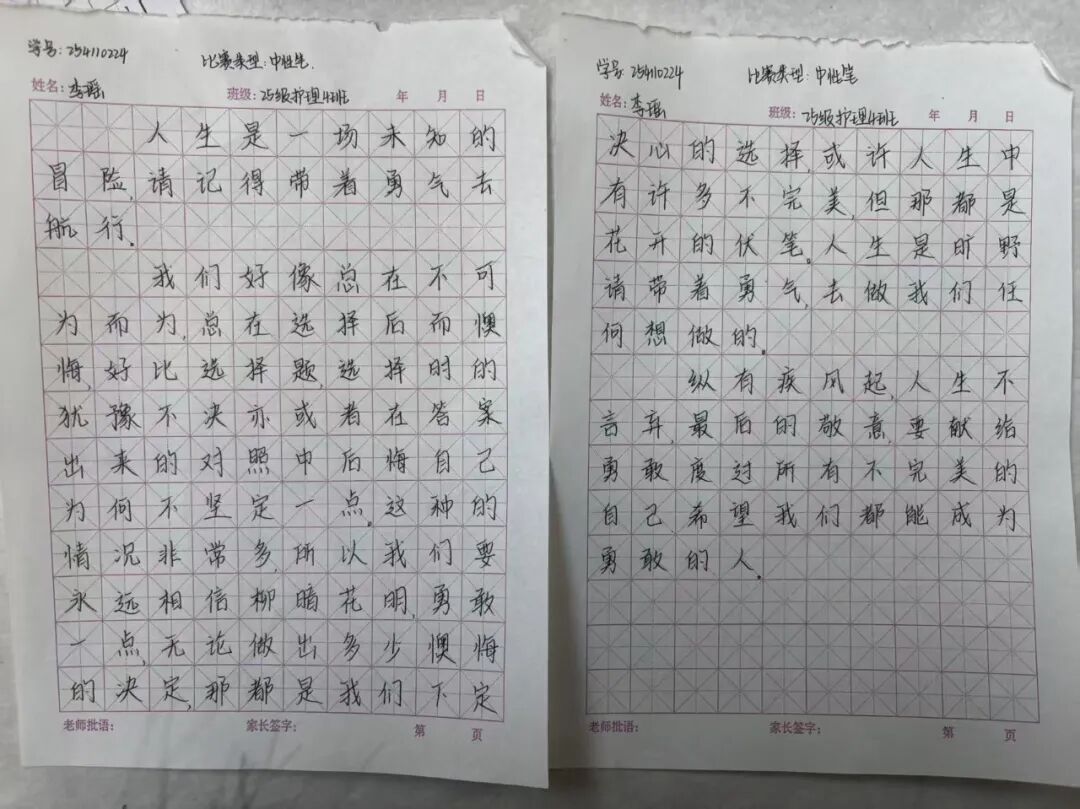 学号:254110224 比赛类型:中性笔.
姓名:李瑶 班级:25级护理4班 年 月 日
人生是一场未知的
冒险,请记得带着勇气去
航行。
我们好像总在不可
为而为,总在选择后而懊
悔,好比选择题,选择时的
犹豫不决亦或者在答案
出来的对照中后悔自己
为何不坚定一点。这种的
情况非常多,所以我们要
永远相信柳暗花明,勇敢
一点,无论做出多少懊悔
的决定,那都是我们下定
老师批语: 家长签字: 第 页
学号:254110224 比赛类型:中性笔
姓名:李瑶 班级:25级护理4班 年 月 日
决心的选择,或许人生中
有许多不完美,但那都是
花开的伏笔。人生是旷野
请带着勇气,去做我们任
何想做的。
纵有疾风起,人生不
言弃,最后的敬意,要献给
勇敢度过所有不完美的
自己希望我们都能成为
勇敢的人。
老师批语: 家长签字: 第 页